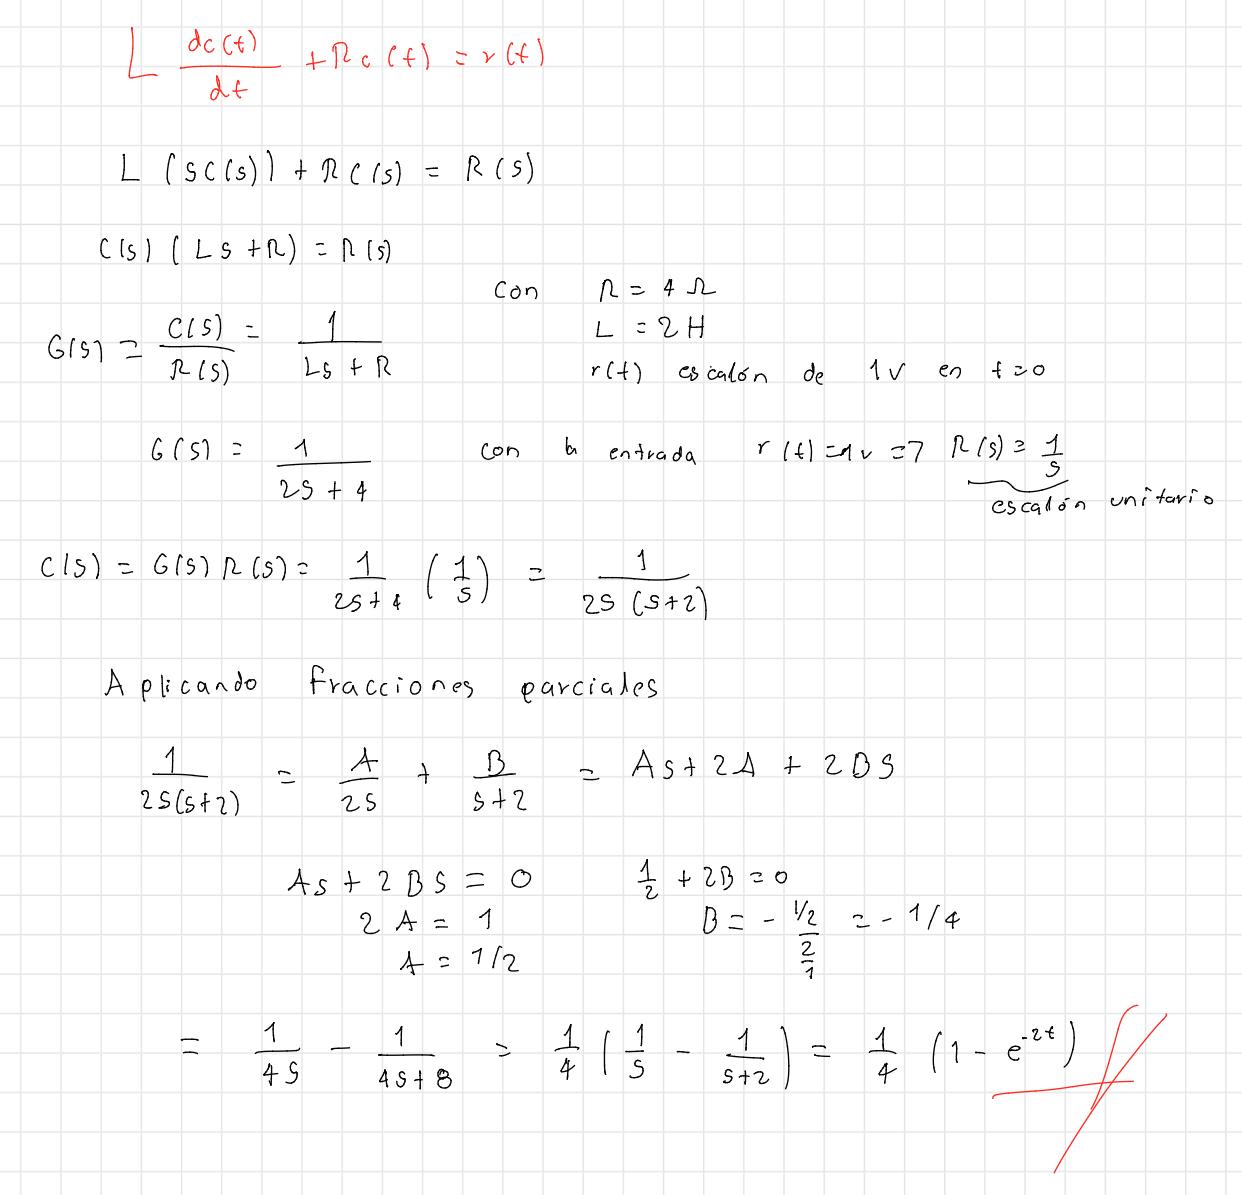 L dc(t)/dt + Rc(t) = r(t)
L (sC(s)) + RC(s) = R(s)
C(s) (Ls + R) = R(s)
con R = 4 Ω
L = 2H
G(s) = C(s)/R(s) = 1/(Ls + R)
r(t) escalón de 1v en t=0
G(s) = 1/(2s + 4) con la entrada r(t)=1v => R(s) = 1/s
escalón unitario
C(s) = G(s) R(s) = 1/(2s+4) (1/s) = 1/(2s (s+2))
Aplicando fracciones parciales
1/(2s(s+2)) = A/2s + B/(s+2) = As + 2A + 2BS
As + 2BS = 0 1/2 + 2B = 0
2A = 1 B = - (1/2)/(2/1) = - 1/4
A = 1/2
= 1/4s - 1/(4s+8) = 1/4 (1/s - 1/(s+2)) = 1/4 (1 - e^-2t)